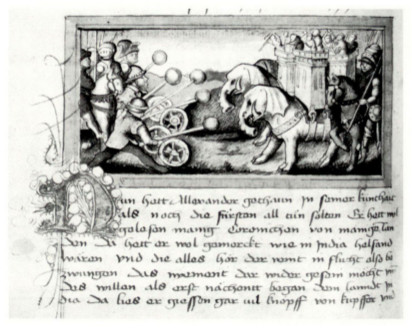 Nun hett Allexander gethaun in seiner kinthait
als noch die fürsten all tün solten Er hett wol
gelesen manig Coronicken von mangē lan
den da hett er wol gemerckt wie in India helfand
waren vnd die alles hör der in flucht also
zwungen das niement dar wider gesein mocht
des willen als erst nächenett began dem lanndt in
dia da lies er giessen gar vil knopff von kupffer vnd